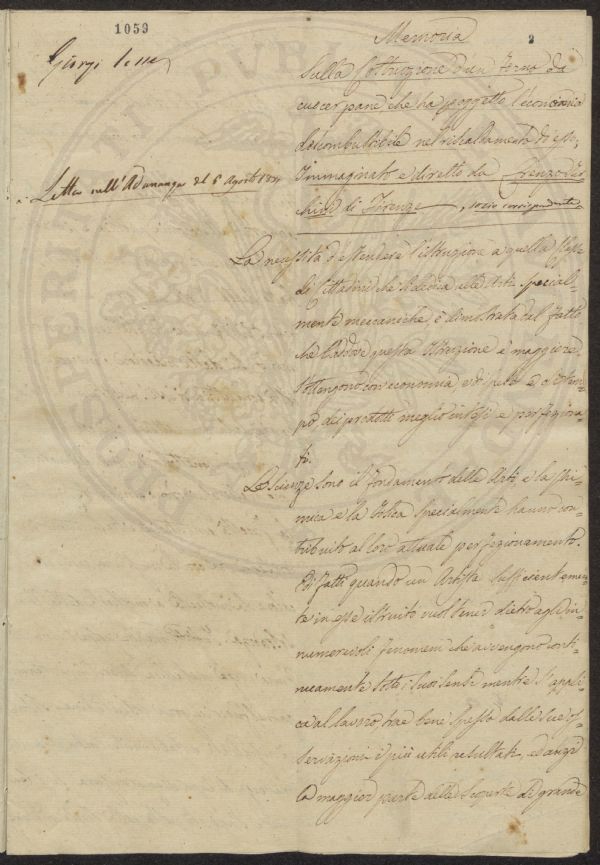 1059
2
Memoria
Sulla Costruzione d'un Forno da
cuocer pane che ha p oggetto l'economia
de combustibile nel riscaldamento di esso,
Immaginato e diretto da
di Firenze, socio corrispondente
Letta nell'Adunanza del 5 Agosto
La necessità d'estendere l'istruzione a quella Classe
di Cittadini che si dedica alle Arti special-
mente meccaniche è dimostrata dal fatto
che laddove questa Istruzione è maggiore,
s'ottengono con economia e di spesa e di tem-
po, dei prodotti meglio intesi e perfeziona-
ti.
Le Scienze sono il fondamento delle Arti, e la Chi-
mica e la Fisica specialmente hanno con-
tribuito al loro attuale perfezionamento.
Di fatti quando un Artista sufficientemen-
te in esse istruito vuol tener dietro agl'in-
numerevoli fenomeni che avvengono conti-
nuamente sotto i suoi sensi mentre s'appli-
ca al lavoro trae bene spesso dalle sue os-
servazioni i più utili resultati, ed anzi
la maggior parte delle scoperte di grande